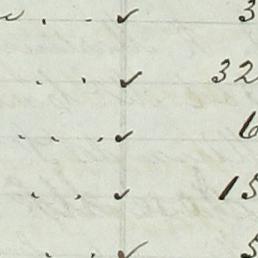 . . ✓ 3
. . ✓ 32
. . . ✓ 6
. . ✓ 13
. . ✓ 5